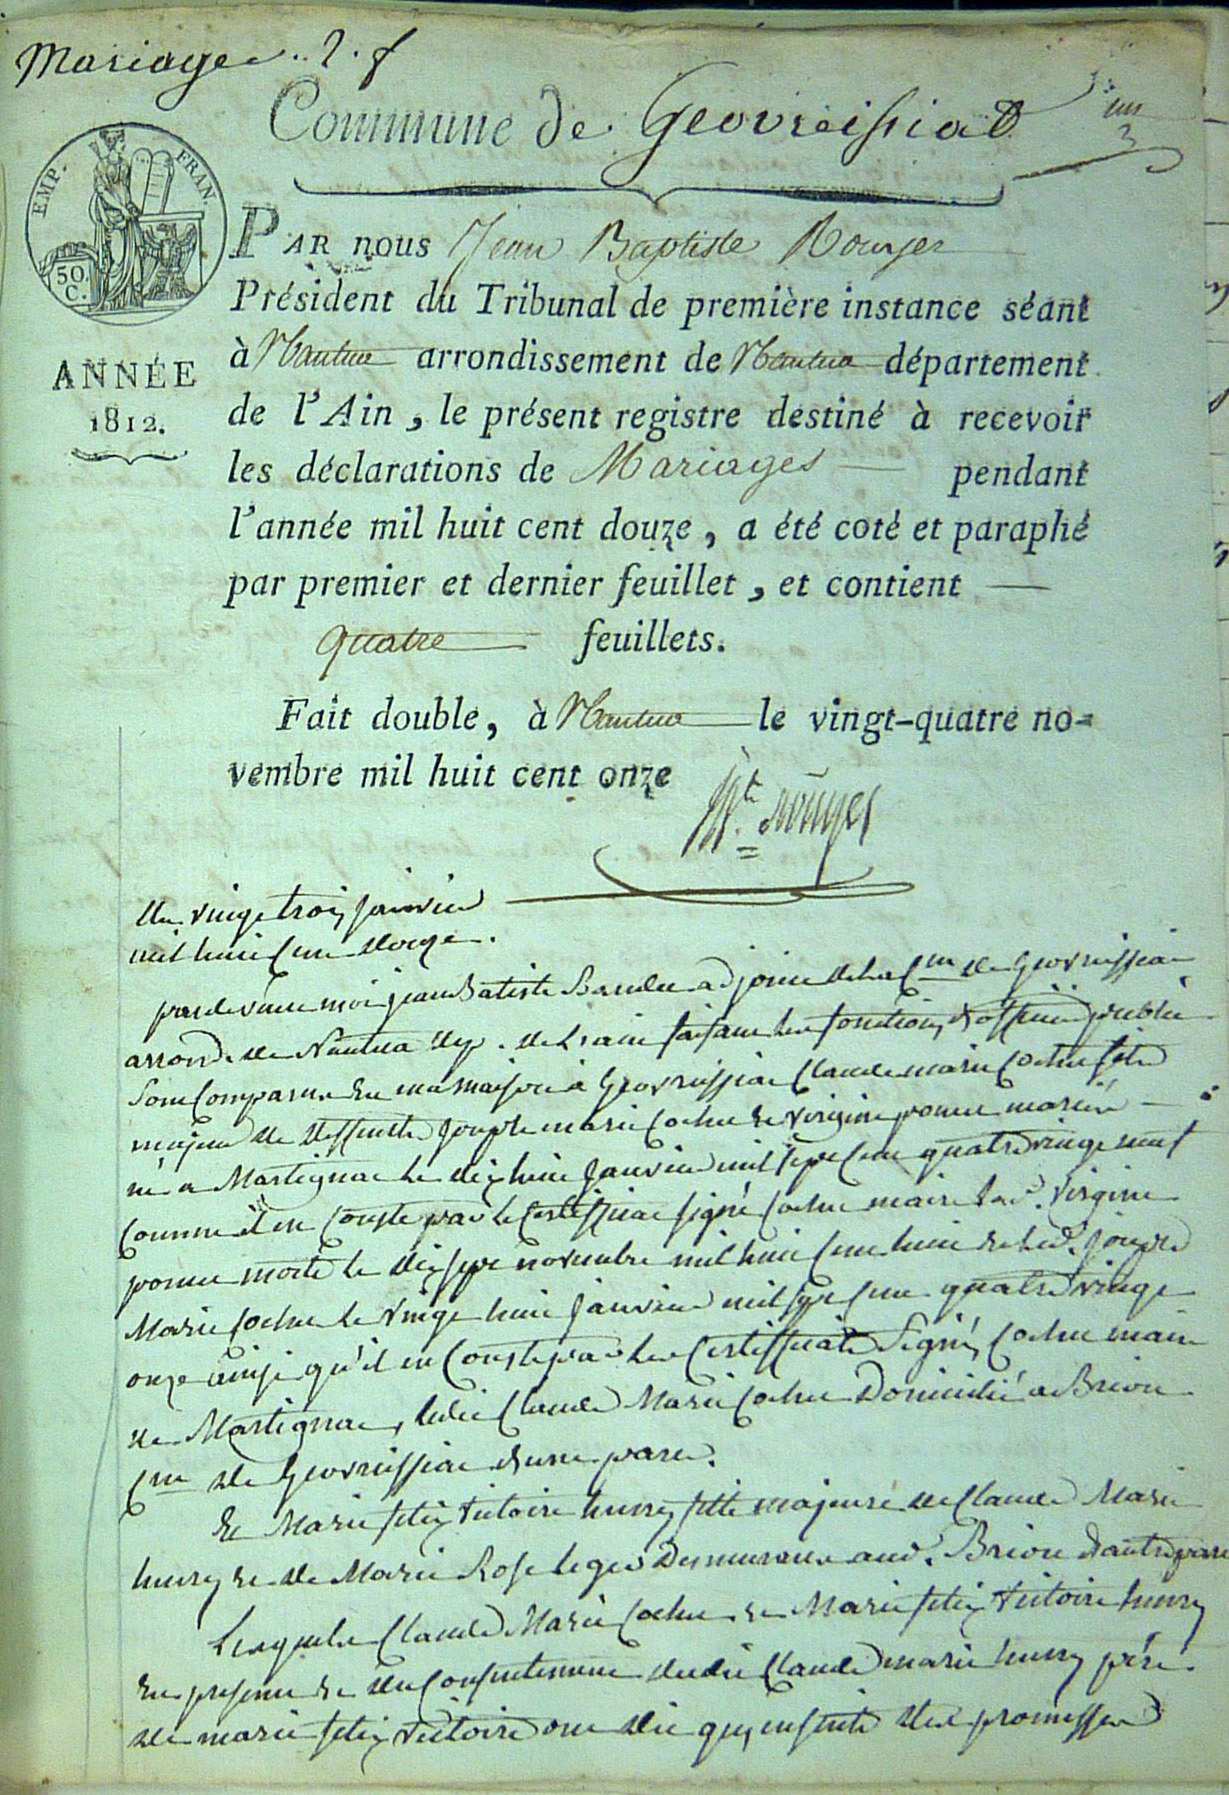 Mariages . 2. f
Commune de Geovreissiat
un
EMP. FRAN.
50 C.
ANNÉE
1812.
PAR nous Jean Baptiste Rouyer
Président du Tribunal de première instance séant
à Nantua arrondissement de Nantua département
de l'Ain, le présent registre destiné à recevoir
les déclarations de Mariages pendant
l'année mil huit cent douze, a été coté et paraphé
par premier et dernier feuillet, et contient
quatre feuillets.
Fait double, à Nantua le vingt-quatre no-
vembre mil huit cent onze
Bte. Rouyer
Du vingt trois janvier
mil huit cent douze.
pardevant moi jean Batiste Baudet adjoint de la Cne de Geovreissiat
arrond. de Nantua dep. de L'ain faisant les fonctions d'officier public
sont comparus en ma maison à Geovreissiat Claude marie Cochet fils
majeur de deffunts joseph marie Cochet et virginie poncet mariés
né a Martignat le dix huit janvier mil sept cent quatre vingt neuf
comme il en conste par le certifficat signé Cochet maire lad. virginie
poncet morte le dix sept novembre mil huit cent huit et led. joseph
Marie Cochet le vingt huit janvier mil sept cent quatre vingt
onze ainsi qu'il en conste par les certifficats signés Cochet maire
de Martignat, ledit Claude Marie Cochet Domicilié a Brion
Cne de Geovreissiat d'une part.
Et Marie victoire fille majeure de Claude Marie
et de Marie Rose leger Demeurant aud. Brion d'autre part
Lesquels Claude Marie Cochet et Marie victoire
en presence et du consentement dudit Claude marie père
de marie victoire ont dit qu'ensuite des promesses